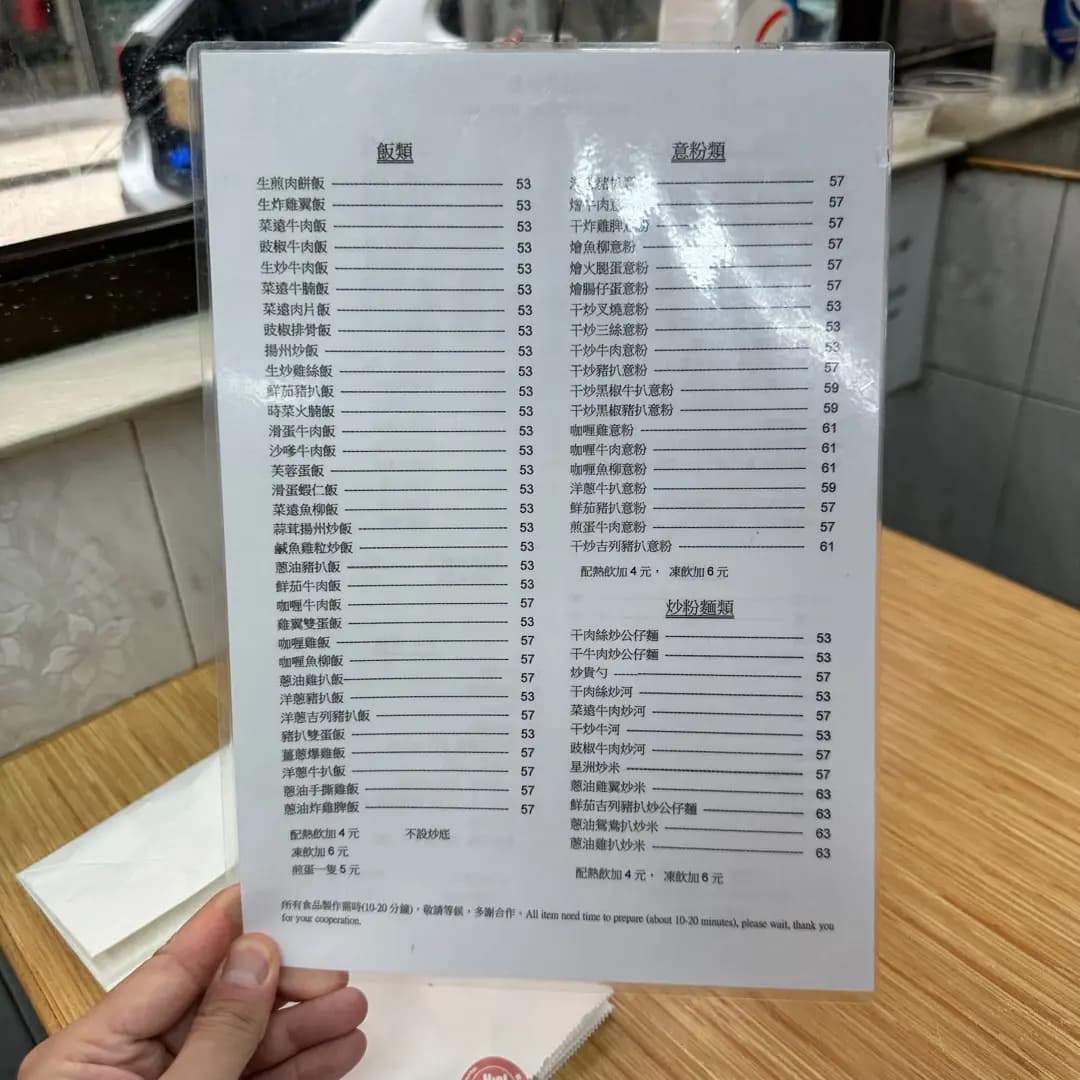 飯類
生煎肉餅飯 53
生炸雞翼飯 53
菜遠牛肉飯 53
豉椒牛肉飯 53
生炒牛肉飯 53
菜遠牛腩飯 53
菜遠肉片飯 53
豉椒排骨飯 53
揚州炒飯 53
生炒雞絲飯 53
鮮茄豬扒飯 53
時菜火腩飯 53
滑蛋牛肉飯 53
沙嗲牛肉飯 53
芙蓉蛋飯 53
滑蛋蝦仁飯 53
菜遠魚柳飯 53
蒜茸揚州炒飯 53
鹹魚雞粒炒飯 53
蔥油豬扒飯 53
鮮茄牛肉飯 53
咖喱牛肉飯 57
雞翼雙蛋飯 53
咖喱雞飯 57
咖喱魚柳飯 57
蔥油雞扒飯 57
洋蔥豬扒飯 53
洋蔥吉列豬扒飯 57
豬扒雙蛋飯 53
薑蔥爆雞飯 57
洋蔥牛扒飯 57
蔥油手撕雞飯 57
蔥油炸雞脾飯 57
配熱飲加 4 元 不設炒底
凍飲加 6 元
煎蛋一隻 5 元
意粉類
豬扒 57
燴牛肉意 57
干炸雞脾意粉 57
燴魚柳意粉 57
燴火腿蛋意粉 57
燴腸仔蛋意粉 57
干炒叉燒意粉 53
干炒三絲意粉 53
干炒牛肉意粉 53
干炒豬扒意粉 57
干炒黑椒牛扒意粉 59
干炒黑椒豬扒意粉 59
咖喱雞意粉 61
咖喱牛肉意粉 61
咖喱魚柳意粉 61
洋蔥牛扒意粉 59
鮮茄豬扒意粉 57
煎蛋牛肉意粉 57
干炒吉列豬扒意粉 61
配熱飲加 4 元， 凍飲加 6 元
炒粉麵類
干肉絲炒公仔麵 53
干牛肉炒公仔麵 53
炒貴勺 57
干肉絲炒河 53
菜遠牛肉炒河 57
干炒牛河 53
豉椒牛肉炒河 57
星洲炒米 57
蔥油雞翼炒米 63
鮮茄吉列豬扒炒公仔麵 63
蔥油鴛鴦扒炒米 63
蔥油雞扒炒米 63
配熱飲加 4 元， 凍飲加 6 元
所有食品製作需時(10-20 分鐘)，敬請等候，多謝合作。All item need time to prepare (about 10-20 minutes), please wait, thank you
for your cooperation.